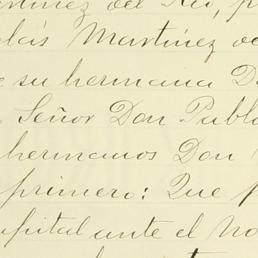 rtínez del Río, p
lás Martínez de
e su hermana D
Señor Don Pabl
hermanos Don
primero: Que p
pital ante el No